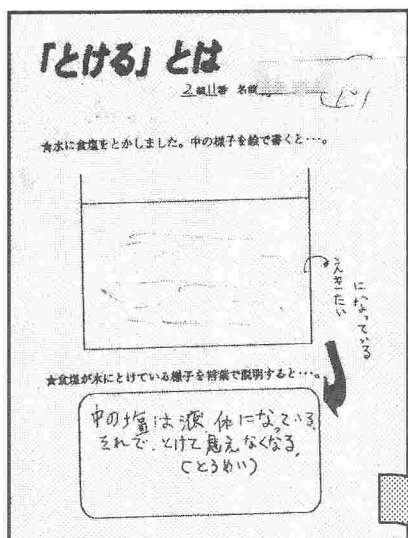 「とける」とは
2組11番 名前
★水に食塩をとかしました。中の様子を絵で書くと・・・。
えきたい
になっている
★食塩が水にとけている様子を言葉で説明すると・・・。
中の塩は液体になっている
それで、とけて見えなくなる。
(とうめい)